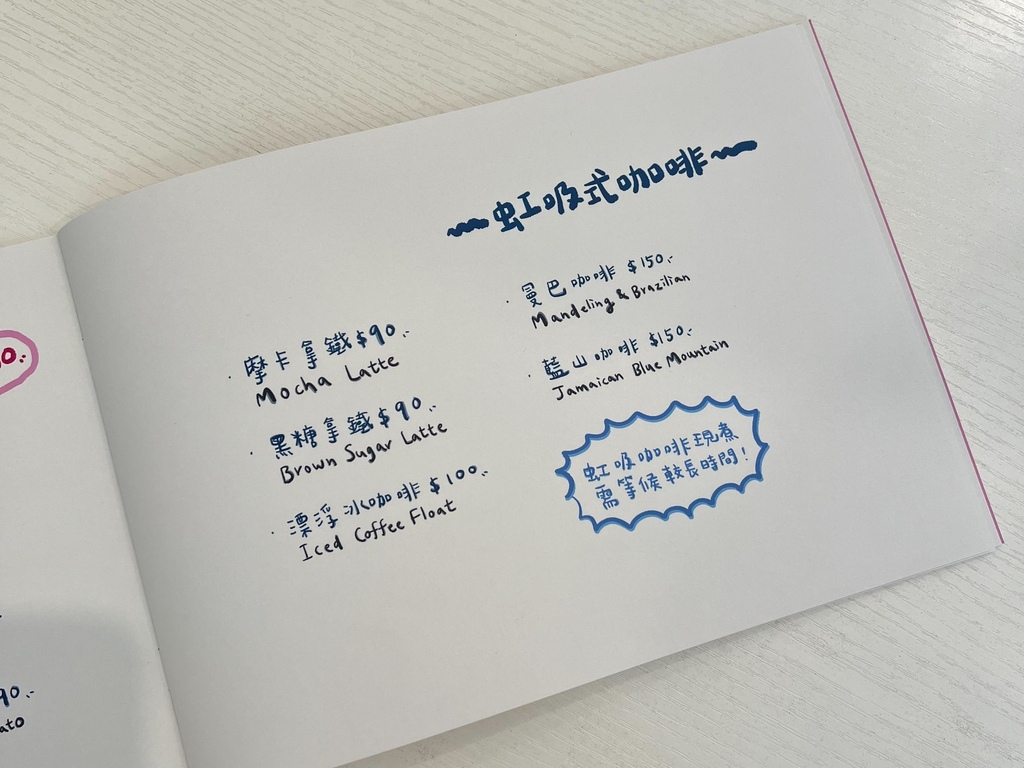 摩卡拿鐵 $90.-
Mocha Latte
黑糖拿鐵 $90.-
Brown Sugar Latte
漂浮冰咖啡 $100.-
Iced Coffee Float
虹吸式咖啡
曼巴咖啡 $150.-
Mandeling & Brazilian
藍山咖啡 $150.-
Jamaican Blue Mountain
虹吸咖啡現煮
需等候較長時間!